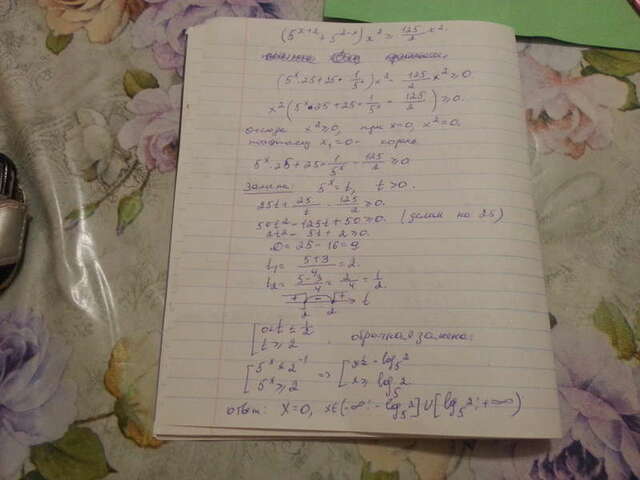 (5^{x+2} + 5^{2-x}) x² ≥ 125/2 x².
(5^x·25 + 25·1/5^x) x² - 125/2 x² ≥ 0.
x² (5^x·25 + 25·1/5^x - 125/2) ≥ 0.
x² ≥ 0, при x=0, x²=0.
поэтому x₁=0 - корень
5^x·25 + 25·1/5^x - 125/2 ≥ 0
Замена: 5^x = t, t > 0.
25t + 25/t - 125/2 ≥ 0.
50t² - 125t + 50 ≥ 0. (делим на 25)
2t² - 5t + 2 ≥ 0.
D = 25 - 16 = 9
t₁ = (5+3)/4 = 2.
t₂ = (5-3)/4 = 2/4 = 1/2.
+ - + t
1/2 2
[0 < t ≤ 1/2
t ≥ 2 обратная замена:
[5^x ≤ 2^{-1} => [x ≤ -log₅2
5^x ≥ 2 x ≥ log₅2
ответ: x=0, x∈(-∞; -log₅2] ∪ [log₅2; +∞)